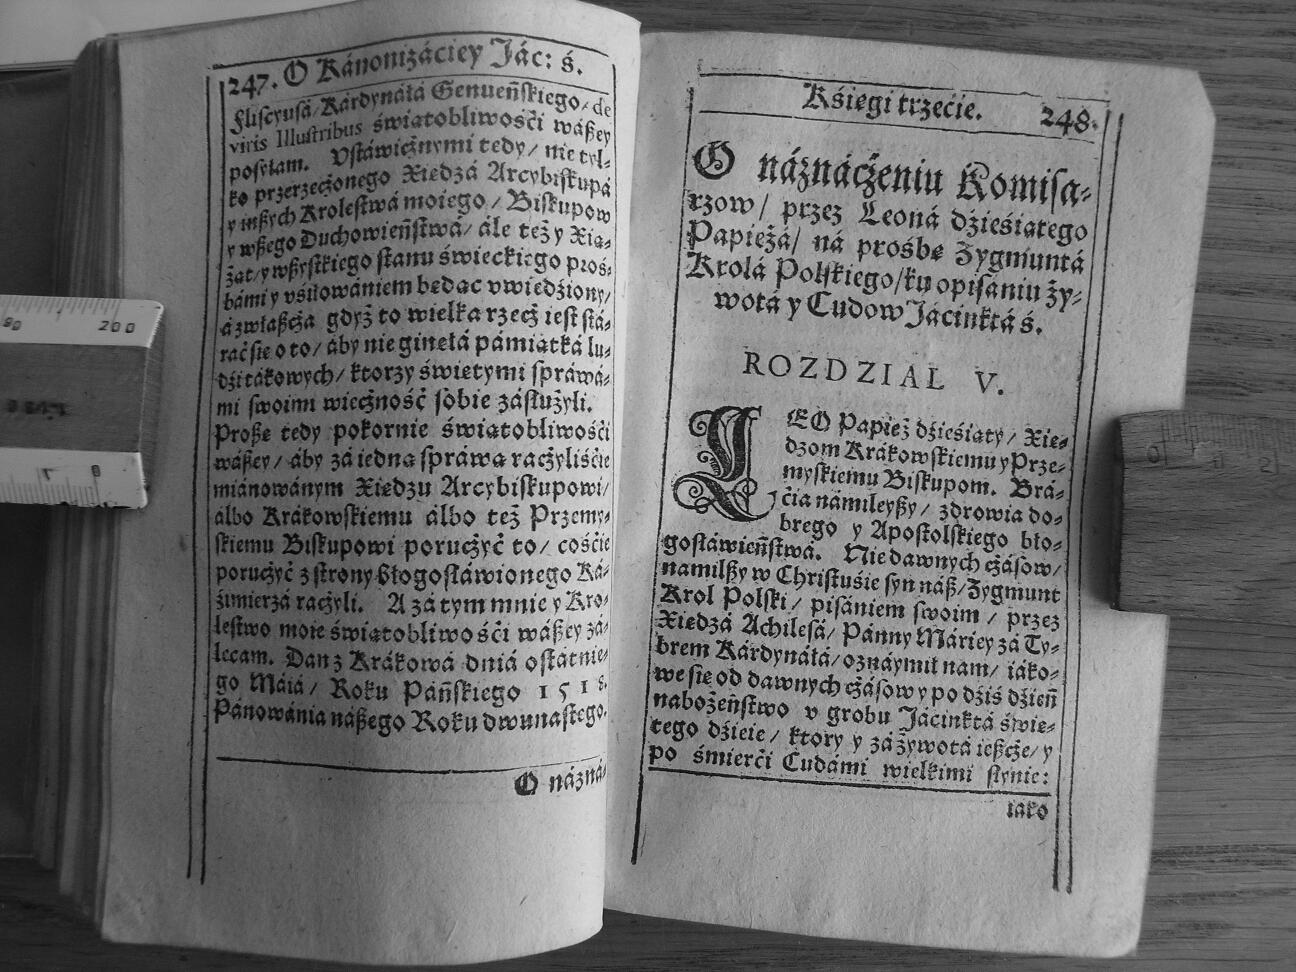 247. O Kánonizáciey Jác: ś.
Fliscyusá/ Kárdynałá Genueńskiego/ de
viris Illustribus świątobliwośći wászey
posyłam. Vstáwicżnymi tedy/ nie tyl-
ko przerzecżonego Xiędzá Arcybiskupá
y inszych Krolestwá moiego/ Biskupow
y wszego Duchowieństwá/ ále też y Xią-
żąt/ y wszystkiego stanu świeckiego proś-
bámi y vśiłowániem będąc vwiedźiony/
á zwłaszcżá gdyż to wielka rzecż iest stá-
ráć sie o to/ áby nie ginęłá pámiątká lu-
dźi tákowych/ ktorzy świętymi spráwá-
mi swoimi wiecżność sobie zásłużyli.
Proszę tedy pokornie świątobliwośći
wászey/ áby zá iedną spráwą racżyliśćie
miánowánym Xiędzu Arcybiskupowi/
álbo Krákowskiemu álbo też Przemy-
skiemu Biskupowi porucżyć to/ cośćie
porucżyć z strony błogosłáwionego Ká-
źimierzá racżyli. A zá tym mnie y Kro-
lestwo moie świątobliwośći wászey zá-
lecam. Dan z Krákowá dniá ostátnie-
go Máiá/ Roku Páńskiego 1518.
Pánowánia nászego Roku dwunastego.
O názná-
Kśięgi trzećie. 248.
O náznácżeniu Komisá-
rzow/ przez Leoná dźieśiątego
Papieżá/ ná prośbę Zygmuntá
Krolá Polskiego/ ku opisániu ży-
wotá y Cudow Jácinktá ś.
ROZDZIAL V.
LEO Papież dźieśiąty/ Xię-
dzom Krákowskiemu y Prze-
myskiemu Biskupom. Brá-
ćia námileyszy/ zdrowia do-
brego y Apostolskiego bło-
gosłáwieństwá. Nie dawnych cżásow/
namilszy w Christuśie syn nász/ Zygmunt
Krol Polski/ pisániem swoim/ przez
Xiędzá Achilesá/ Pánny Máriey zá Ty-
brem Kárdynałá/ oznáymił nam/ iáko-
we sie od dawnych cżásow y po dźiś dźień
nabożeństwo v grobu Jácinktá świę-
tego dźieie/ ktory y zá żywotá ieszcże/ y
po śmierći Cudámi wielkimi słynie:
iako